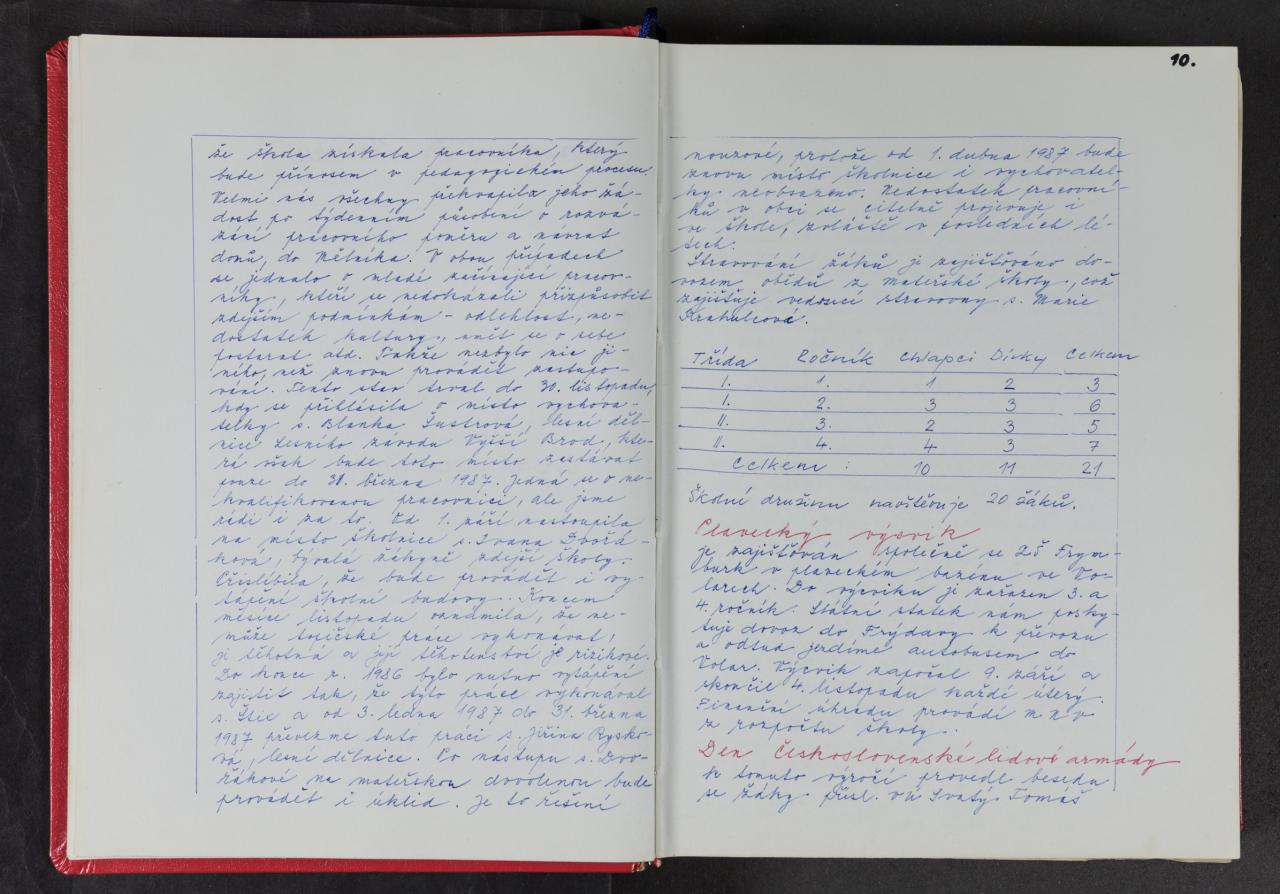 že škola získala pracovníka, který
bude přínosem v pedagogickém procesu.
Velmi nás všechny překvapila jeho žá-
dost po týdenním působení o rozvá-
zání pracovního poměru a návrat
domů, do Mělníka. V obou případech
se jednalo o mladé začínající pracov-
níky, kteří se nedokázali přizpůsobit
zdejším podmínkám - odlehlost, ne-
dostatek kultury, umět se o sebe
postarat atd. Takže nezbylo nic ji-
ného, než znovu provádět zastupo-
vání. Tento stav trval do 30. listopadu,
kdy se přihlásila o místo vychova-
telky s. Blanka Šustrová, lesní děl-
nice Lesního závodu Vyšší Brod, kte-
rá však bude toto místo zastávat
pouze do 31. března 1987. Jedná se o ne-
kvalifikovanou pracovnici, ale jsme
rádi i za to. Od 1. září nastoupila
na místo školnice s. Ivana Dvořá-
ková, bývalá žákyně zdejší školy.
Přislíbila, že bude provádět i vy-
tápění školní budovy. Koncem
měsíce listopadu oznámila, že ne-
může topičské práce vykonávat,
je těhotná a její těhotenství je rizikové.
Do konce r. 1986 bylo nutno vytápění
zajistit tak, že tyto práce vykonával
s. Štic a od 3. ledna 1987 do 31. března
1987 převezme tuto práci s. Jiřina Rysko-
vá, lesní dělnice. Po nástupu s. Dvo-
řákové na mateřskou dovolenou bude
provádět i úklid. Je to řešení
10.
nouzové, protože od 1. dubna 1987 bude
znovu místo školnice i vychovatel-
ky neobsazeno. Nedostatek pracovní-
ků v obci se citelně projevuje i
ve škole, zvláště v posledních lé-
tech.
Stravování žáků je zajišťováno do-
vozem obědů z mateřské školy, což
zajišťuje vedoucí stravovny s. Marie
Krahulcová.
Třída Ročník chlapci Dívky Celkem
I. 1. 1 2 3
I. 2. 3 3 6
II. 3. 2 3 5
II. 4. 4 3 7
Celkem : 10 11 21
Školní družinu navštěvuje 20 žáků.
Plavecký výcvik
je zajišťován společně se ZŠ Frym-
burk v plaveckém bazénu ve Vo-
larech. Do výcviku je zařazen 3. a
4. ročník. Státní statek nám posky-
tuje dovoz do Frýdavy k převozu
a odtud jezdíme autobusem do
Volar. Výcvik započal 9. září a
skončil 4. listopadu každé úterý.
Finanční úhradu provádí m n v
z rozpočtu školy.
Den Československé lidové armády
k tomuto výročí provedl besedu
se žáky přísl. VÚ Svatý Tomáš